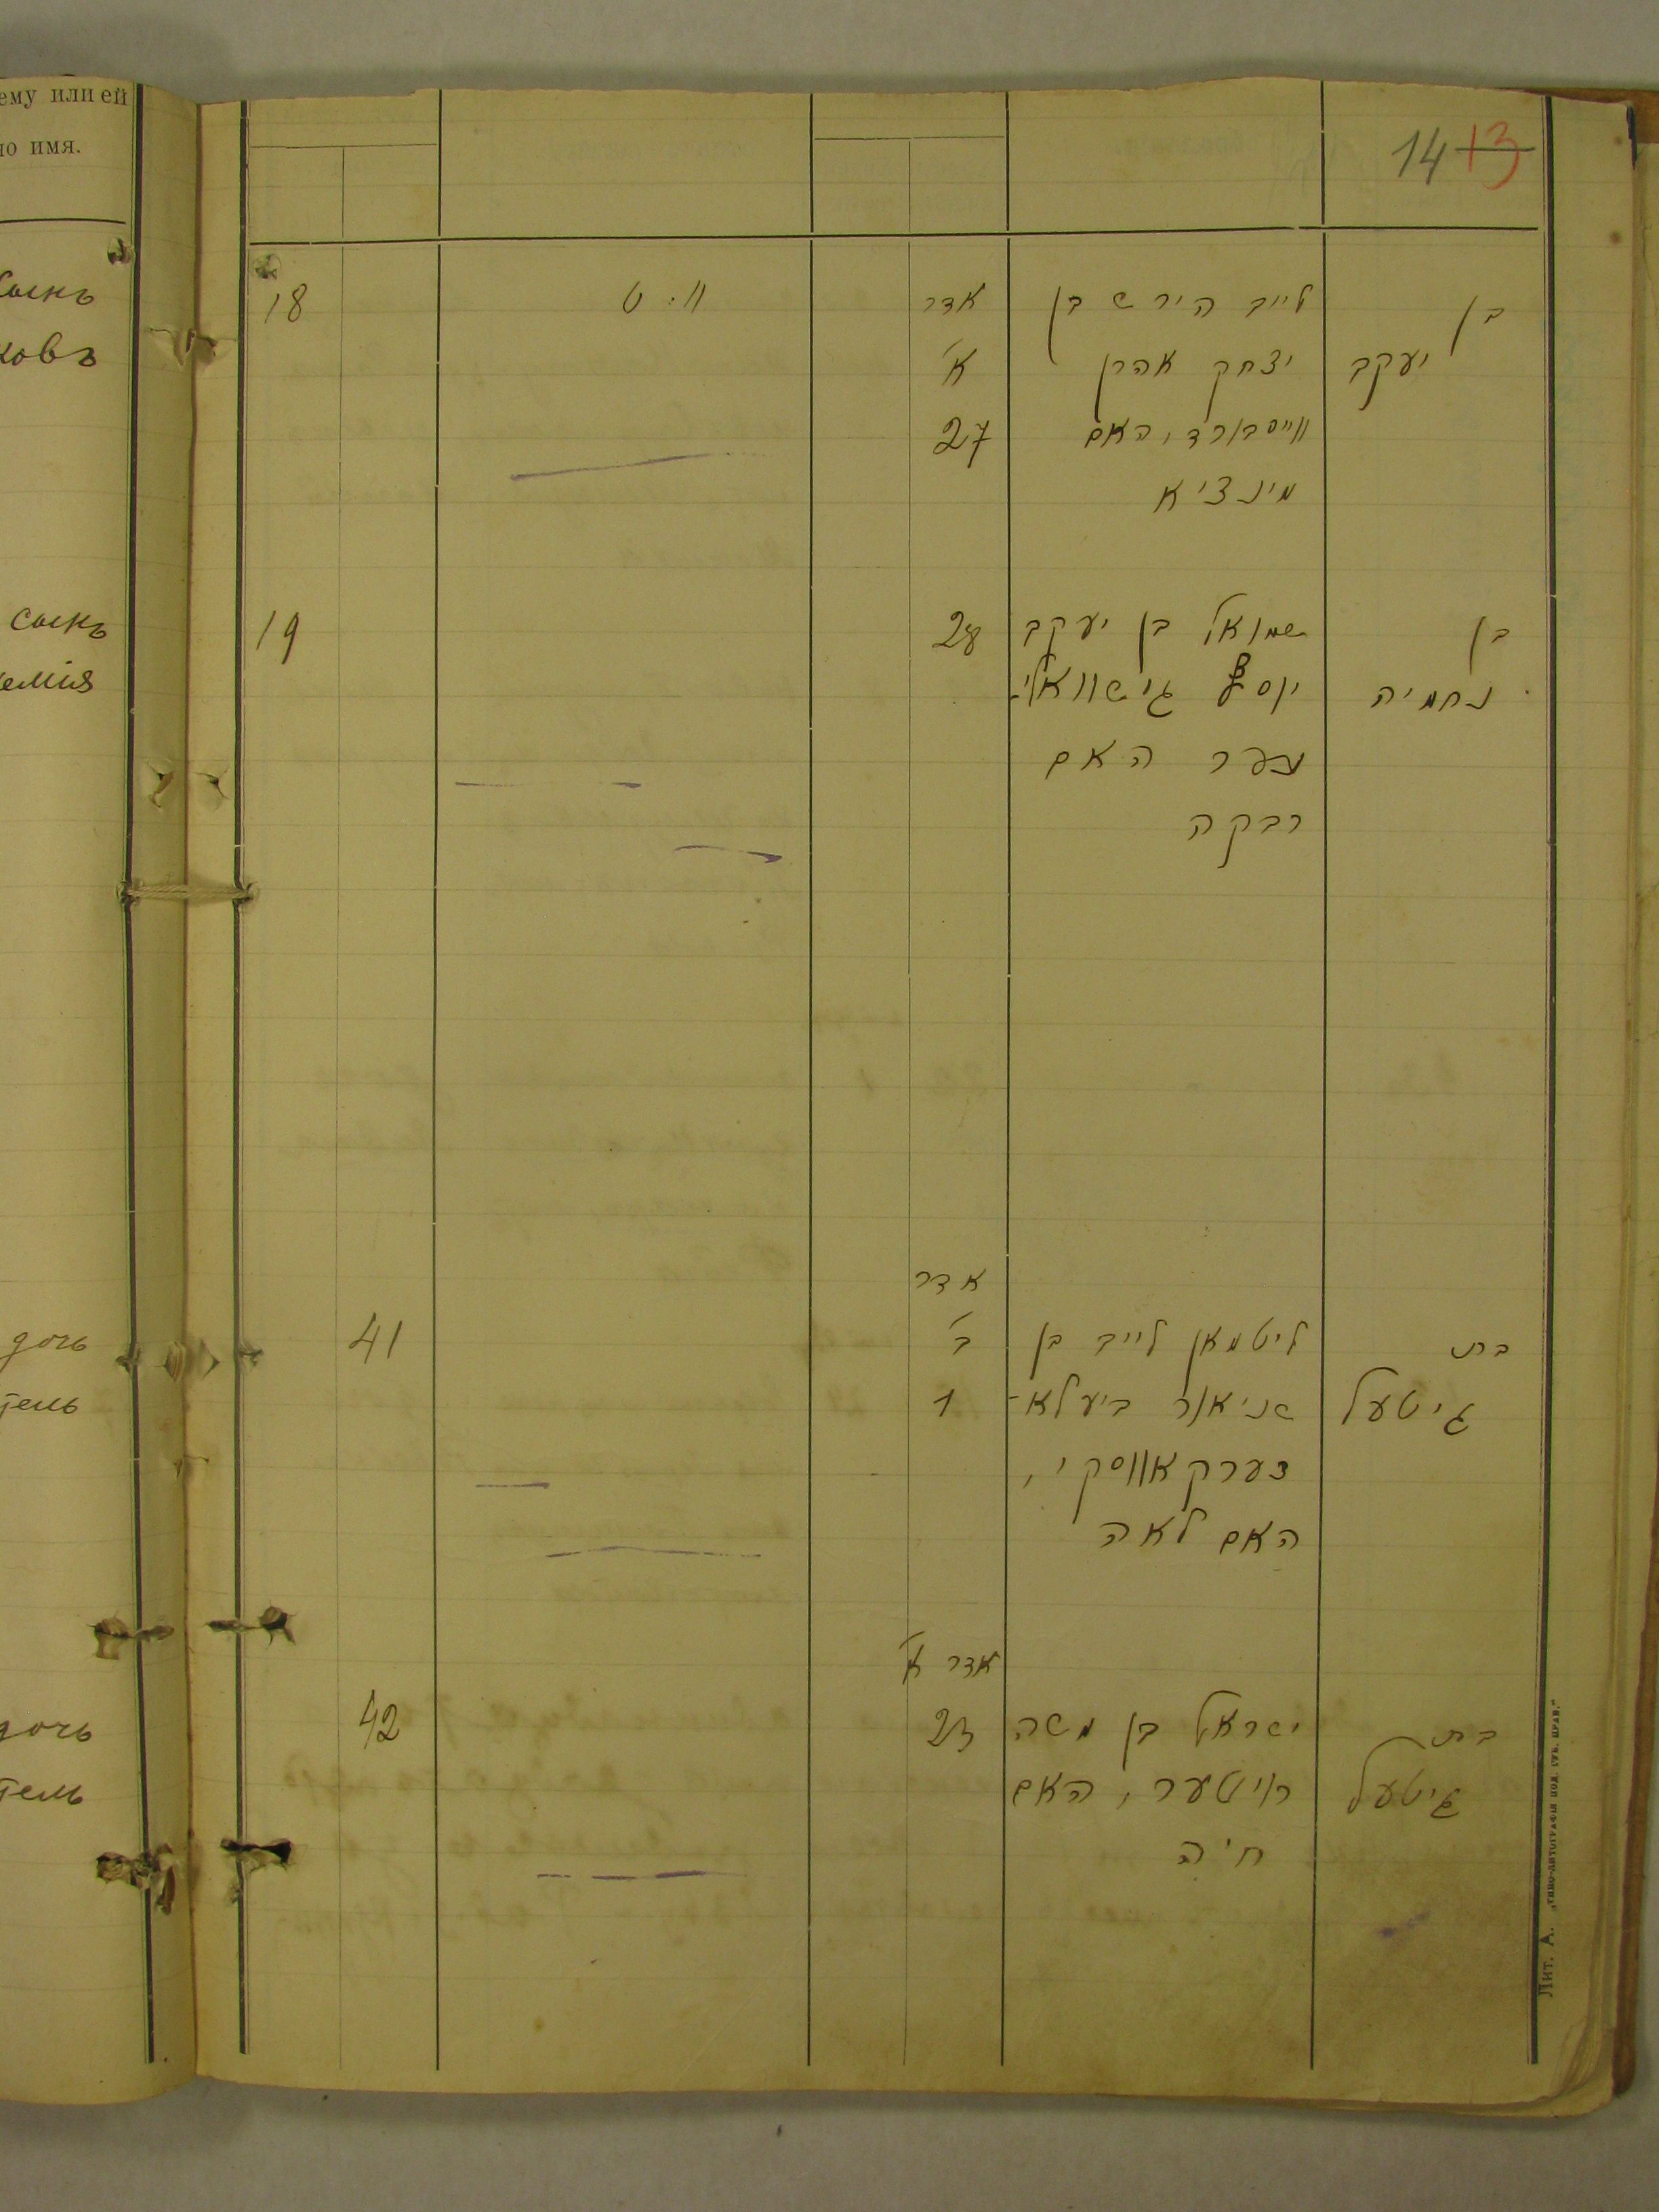 ему или ей
но имя.
14 13
сынъ
ковъ
18
ט .וו
אדר
א'
27
לייב הירש בן
יצחק אהרן
ווייסבורד, האם
מינציא
בן
יעקב
сынъ
емія
19
28
שמואל בן יעקב
יוסף גישוואלי-
נער האם
רבקה
בן
נחמיה
дочь
тель
41
אדר
ב'
1
ליטמאן לייב בן
שניאור ביעלא-
צערקאווסקי,
האם לאה
בת
גיטעל
дочь
тель
42
אדר א'
23
ישראל בן משה
רויטער, האם
חיה
בת
גיטעל
Лит. А. „Типо-литографія